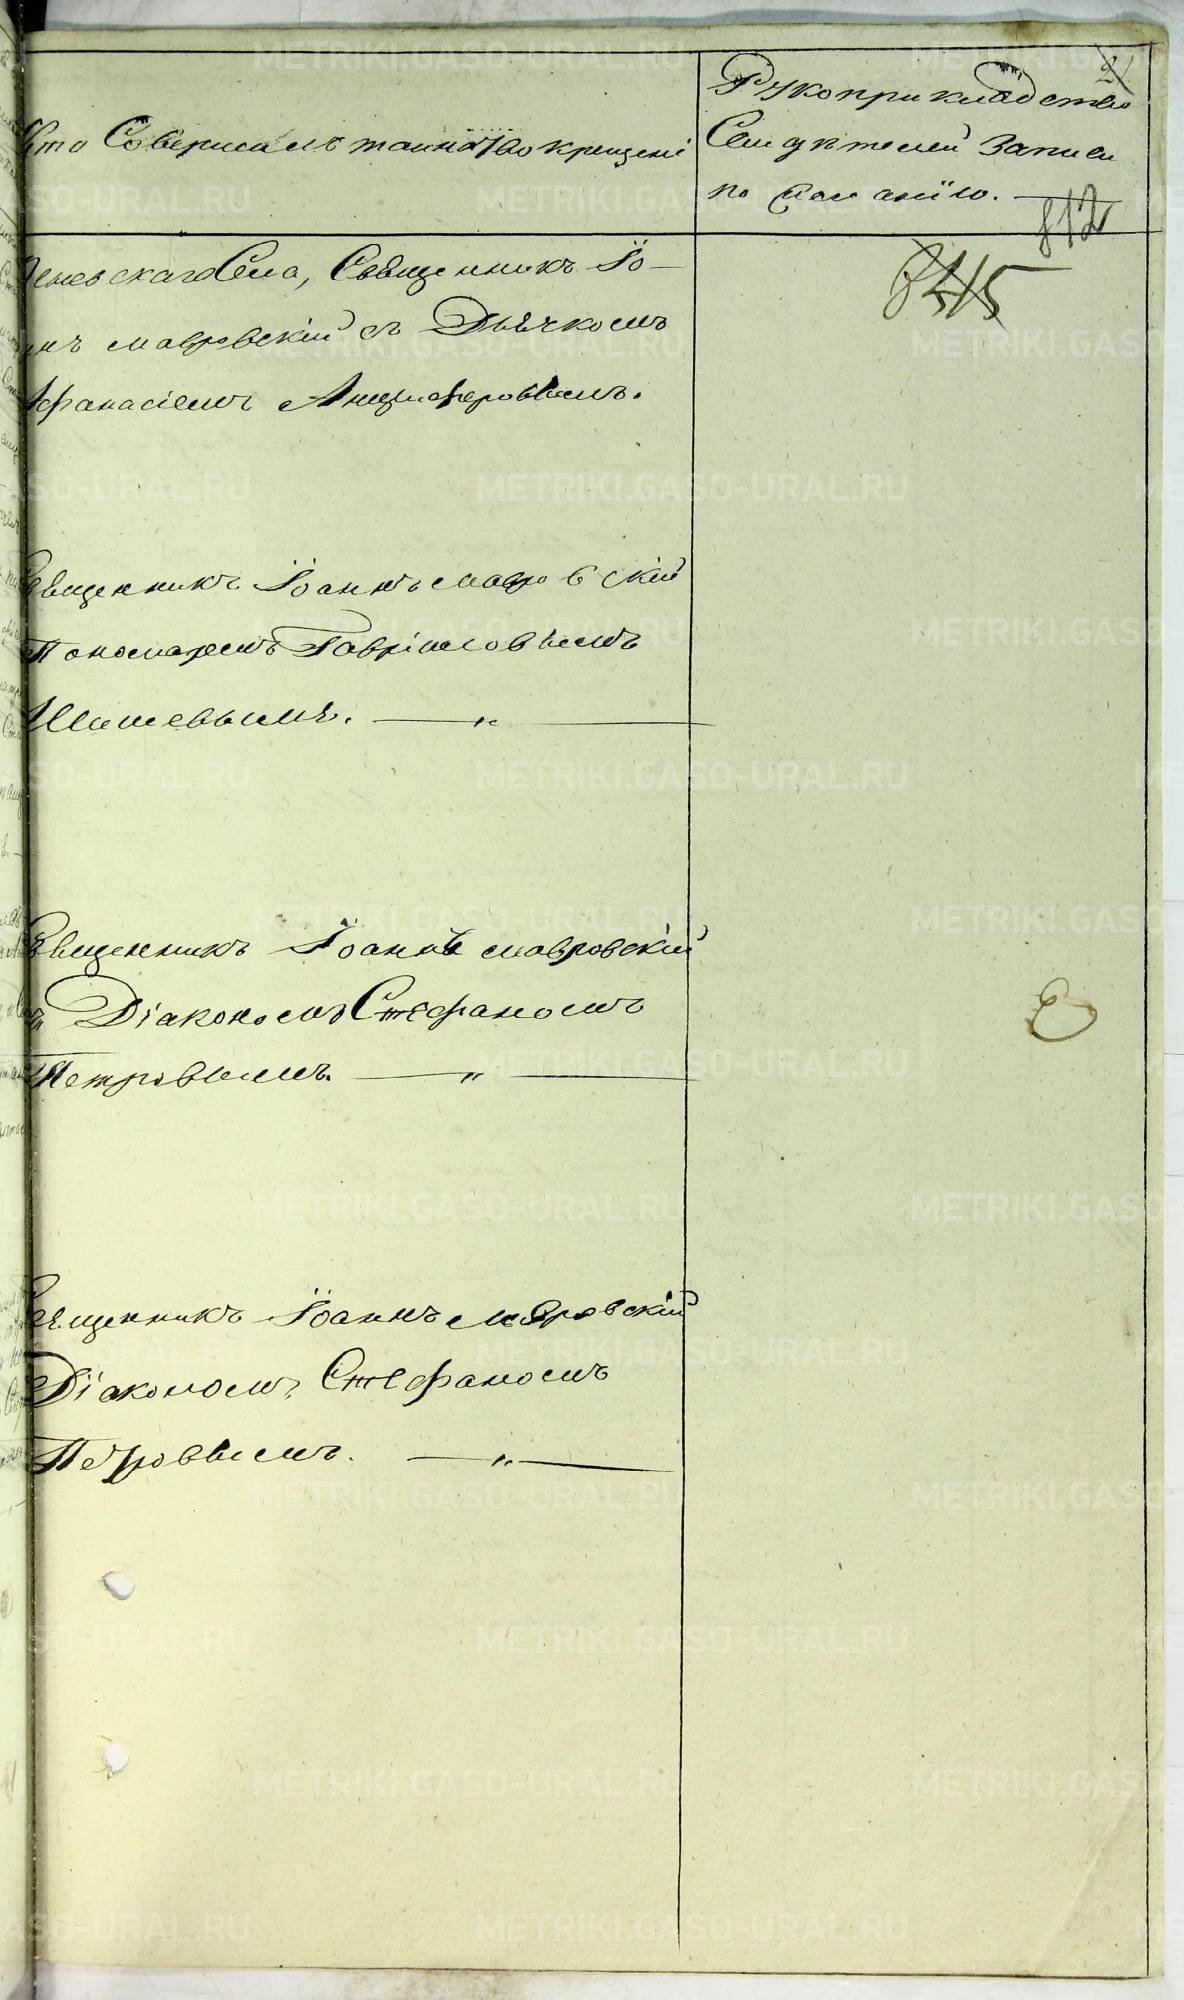 21
Кто Совершалъ таинство крещенія
Рукоприкладство
Свидѣтелей Записи
по желанію.
812
815
Села, Священникъ Іо-
аннъ Мавровскій съ Дьячкомъ
Афанасіемъ Анцыферовымъ.
Священникъ Іоаннъ Мавровскій
Пономаремъ Гавріиловымъ
Шишевымъ.
Священникъ Іоаннъ Мавровскій
съ Діакономъ Стефаномъ
Петровымъ.
Священникъ Іоаннъ Мавровскій
Діакономъ Стефаномъ
Петровымъ.
METRIKI.GASO-URAL.RU